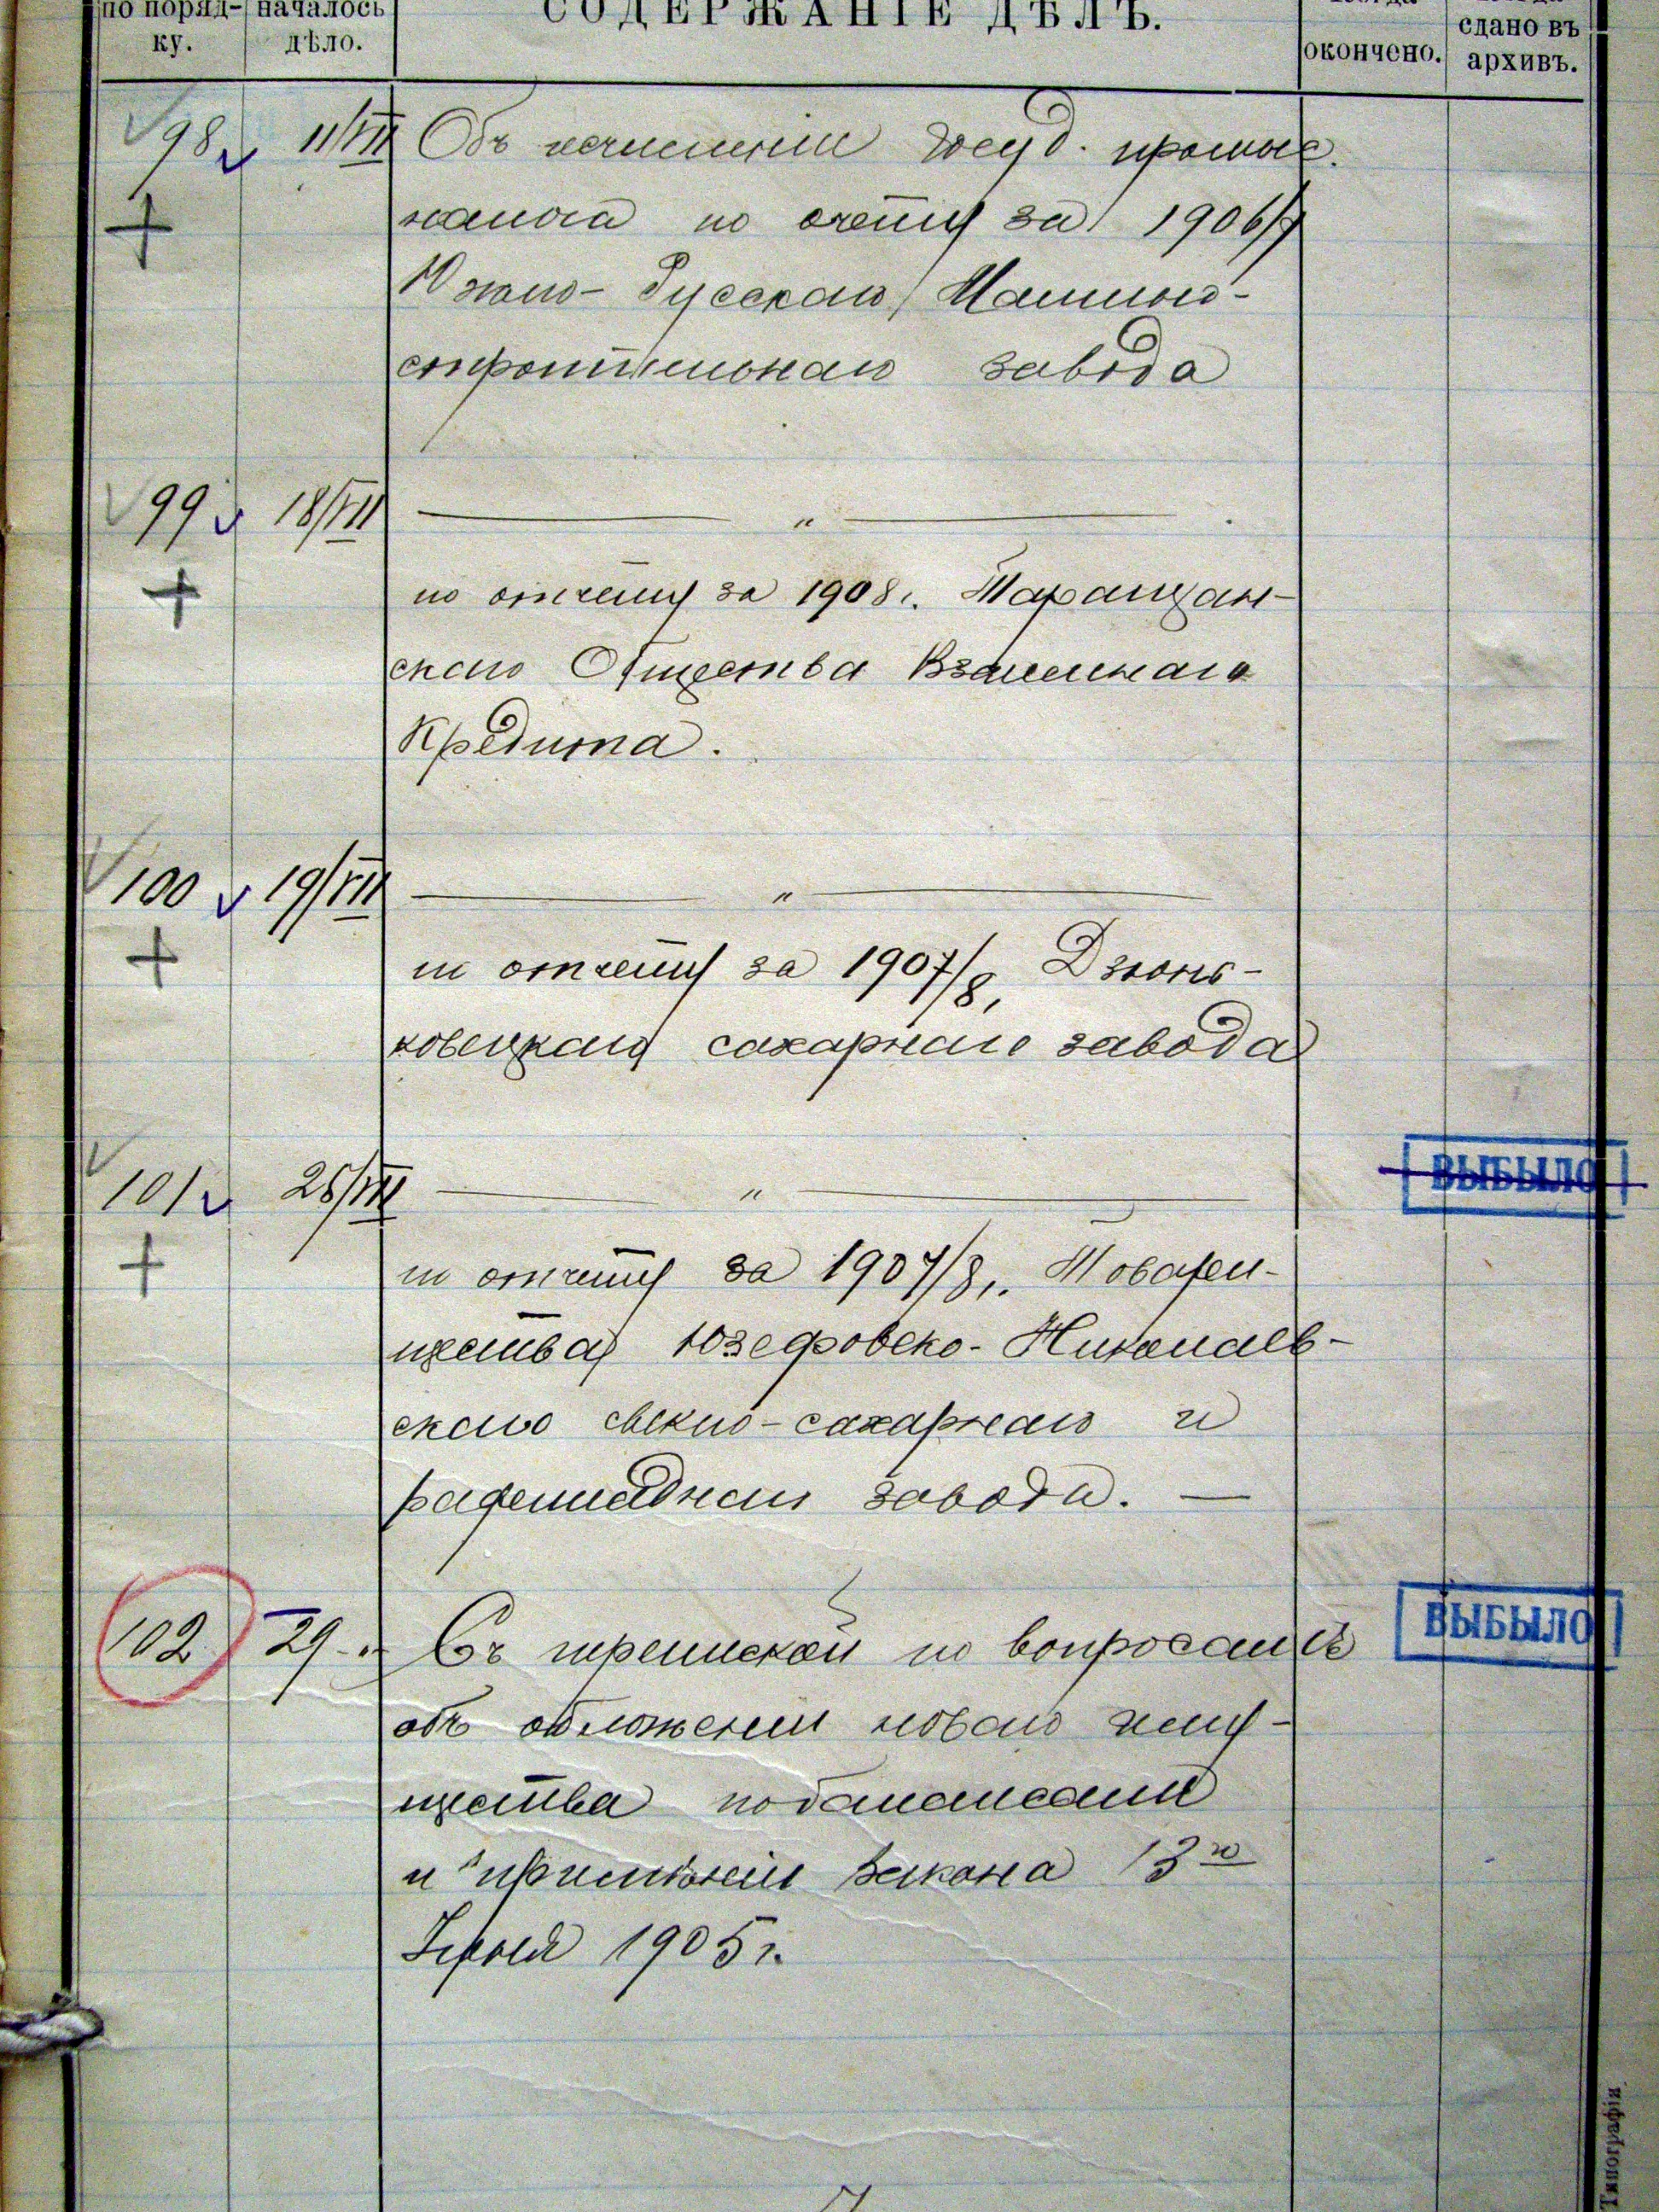 по поряд-
ку.
началось
дѣло.
СОДЕРЖАНІЕ ДѢЛЪ.
окончено.
сдано въ
архивъ.
98 11/VII Объ исчисленіи госуд. промыс.
налога по отчету за 1906/7
Южно-Русскаго Машино-
строительнаго завода
99 18/VII — " —
по отчету за 1908 г. Таращан-
скаго Общества Взаимнаго
Кредита.
100 19/VII — " —
по отчету за 1907/8 г. Дзюнь-
ковецкаго сахарнаго завода
101 25/VII — " — ВЫБЫЛО
по отчету за 1907/8 г. Товари-
щества Юзефовско-Николаев-
скаго свекло-сахарнаго и
рафинаднаго завода. —
102 29 " Съ перепиской по вопросамъ ВЫБЫЛО
объ обложеніи новаго иму-
щества по балансамъ
и примѣненіи закона 13го
1905 г.
Типографія